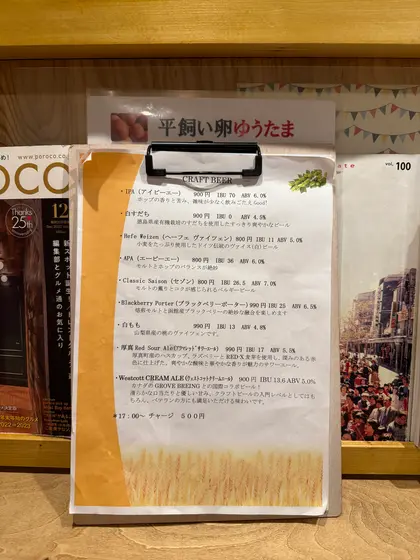 平飼い卵ゆうたま
CRAFT BEER
・IPA（アイピーエー） 900円 IBU 70 ABV 6.0%
ホップの香りと苦み、雑味が少なく飲みごたえGood!
・白すだち 900円 IBU 0 ABV 4.5%
徳島県産有機栽培のすだちを使用したすっきり爽やかなビール
・Hefe Weizen（ヘーフェ ヴァイツェン）800円 IBU 11 ABV 5.0%
小麦をたっぷり使用したドイツ伝統のヴァイス(白)ビール
・APA（エーピーエー） 800円 IBU 36 ABV 6.0%
モルトとホップのバランスが絶妙
・Classic Saison（セゾン）800円 IBU 26.5 ABV 7.0%
モルトの薫りとコクが感じられるベルギービール
・Blackberry Porter（ブラックベリーポーター）990円 IBU 25 ABV 6.5%
焙煎モルトと函館産ブラックベリーの絶妙な融合を楽しめます
・白もも 990円 IBU 13 ABV 4.8%
山梨県産の桃のヴァイツェンです。
・厚真 Red Sour Ale 990円 IBU 17 ABV 5.5%
厚真町産のハスカップ、ラズベリーと
色に仕上げた、爽やかな酸味と華やかな香りが魅力のサワーエール。
・Westcott CREAM ALE（ウェストコットクリームエール） 900円 IBU 13.6 ABV 5.0%
カナダの GROVE BREEING との国際コラボビール！
滑らかな口当たりと優しい甘み、クラフトビールの入門レベルとしてはも
ちろん、ベテランの方にも満足いただける味わいです。
#17:00～ チャージ 500円
www.poroco.co
OCO
Thanks
25th
12
編集部とグルメ通のお気に入り
2022▶2023
vol.100